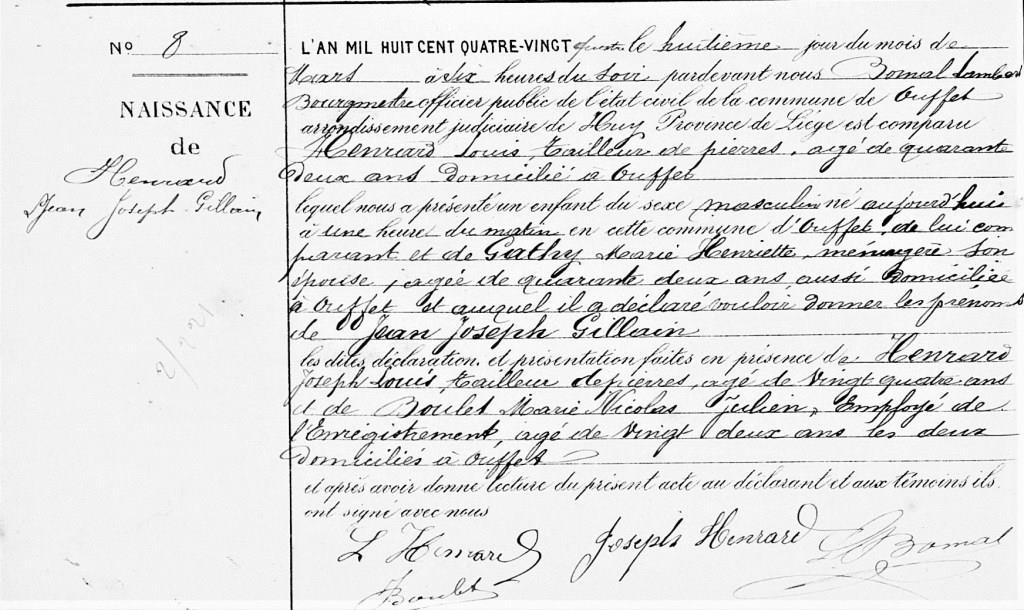 No 8
NAISSANCE
de
Henrard
Jean Joseph Gillain
2/221
L'AN MIL HUIT CENT QUATRE-VINGT quatre le huitième jour du mois de
Mars à six heures du soir pardevant nous Bomal Lambert
Bourgmestre officier public de l'état civil de la commune de Ouffet
arrondissement judiciaire de Huy Province de Liége est comparu
Henrard Louis, tailleur de pierres, agé de quarante
deux ans domicilié à Ouffet
lequel nous a présenté un enfant du sexe masculin né aujourd'hui
à une heure du matin en cette commune d'Ouffet, de lui com
parant et de Gathy Marie Henriette, ménagère son
épouse, agée de quarante deux ans, aussi domiciliée
à Ouffet et auquel il a déclaré vouloir donner les prénoms
de Jean Joseph Gillain
les dites déclaration et présentation faites en présence de Henrard
Joseph Louis, tailleur de pierres, agé de vingt quatre ans
et de Boulet Marie Nicolas Julien, Employé de
l'Enregistrement, agé de vingt deux ans les deux
domiciliés à Ouffet
et après avoir donné lecture du présent acte au déclarant et aux témoins ils
ont signé avec nous
L Henrard Joseph Henrard L Bomal
Boulet